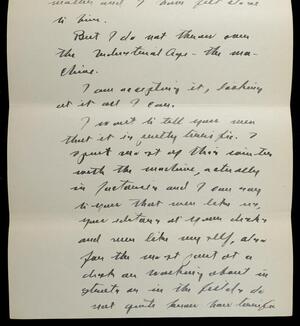 matter and I have felt close
to him.
But I do not throw over
the Industrial Age - the ma-
chine.
I am accepting it, looking
at it all I can.
I want to tell you men
that it is pretty terrific. I
spent most of this winter
with the machine, actually
in factories and I can say
to you that men like us,
you editors at your desks
and men like myself, also
for the most part at a
desk or working about in
streets or in the fields do
not quite know how terrific